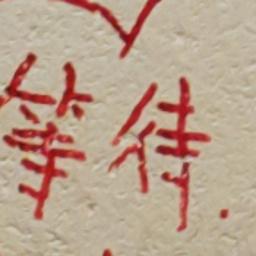 等待.